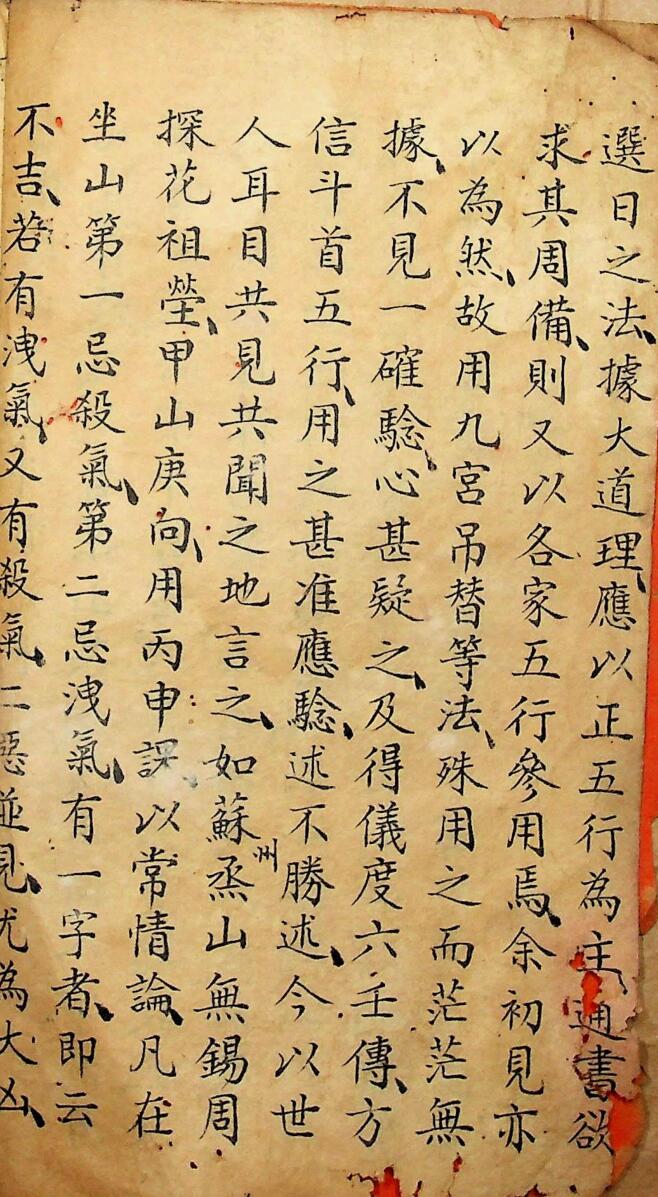 選日之法、據大道理、應以正五行為主、通書欲
求其周備、則又以各家五行參用焉、余初見亦
以為然、故用九宮吊替等法、殊用之而茫茫無
據、不見一確騐、心甚疑之、及得儀度六壬傳、方
信斗首五行、用之甚准應騐、述不勝述、今以世
人耳目共見共聞之地言之、如蘇州烝山無錫周
探花祖塋、甲山庚向、用丙申課、以常情論、凡在
坐山第一忌殺氣、第二忌洩氣、有一字者、即云
不吉、若有洩氣、又有殺氣、二惡並見、尤為大凶、